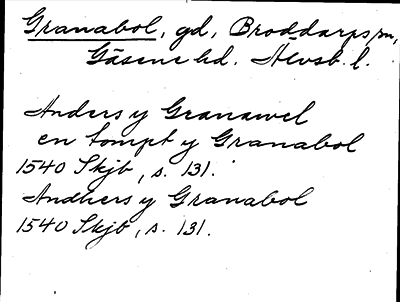 Granabol, gd, Broddarps sn,
Gäsene hd. Älvsb. l.
Anders y Granawel
en tompt y Granabol
1540 Skjb, s. 131.
Andhers y Granabol
1540 Skjb, s. 131.